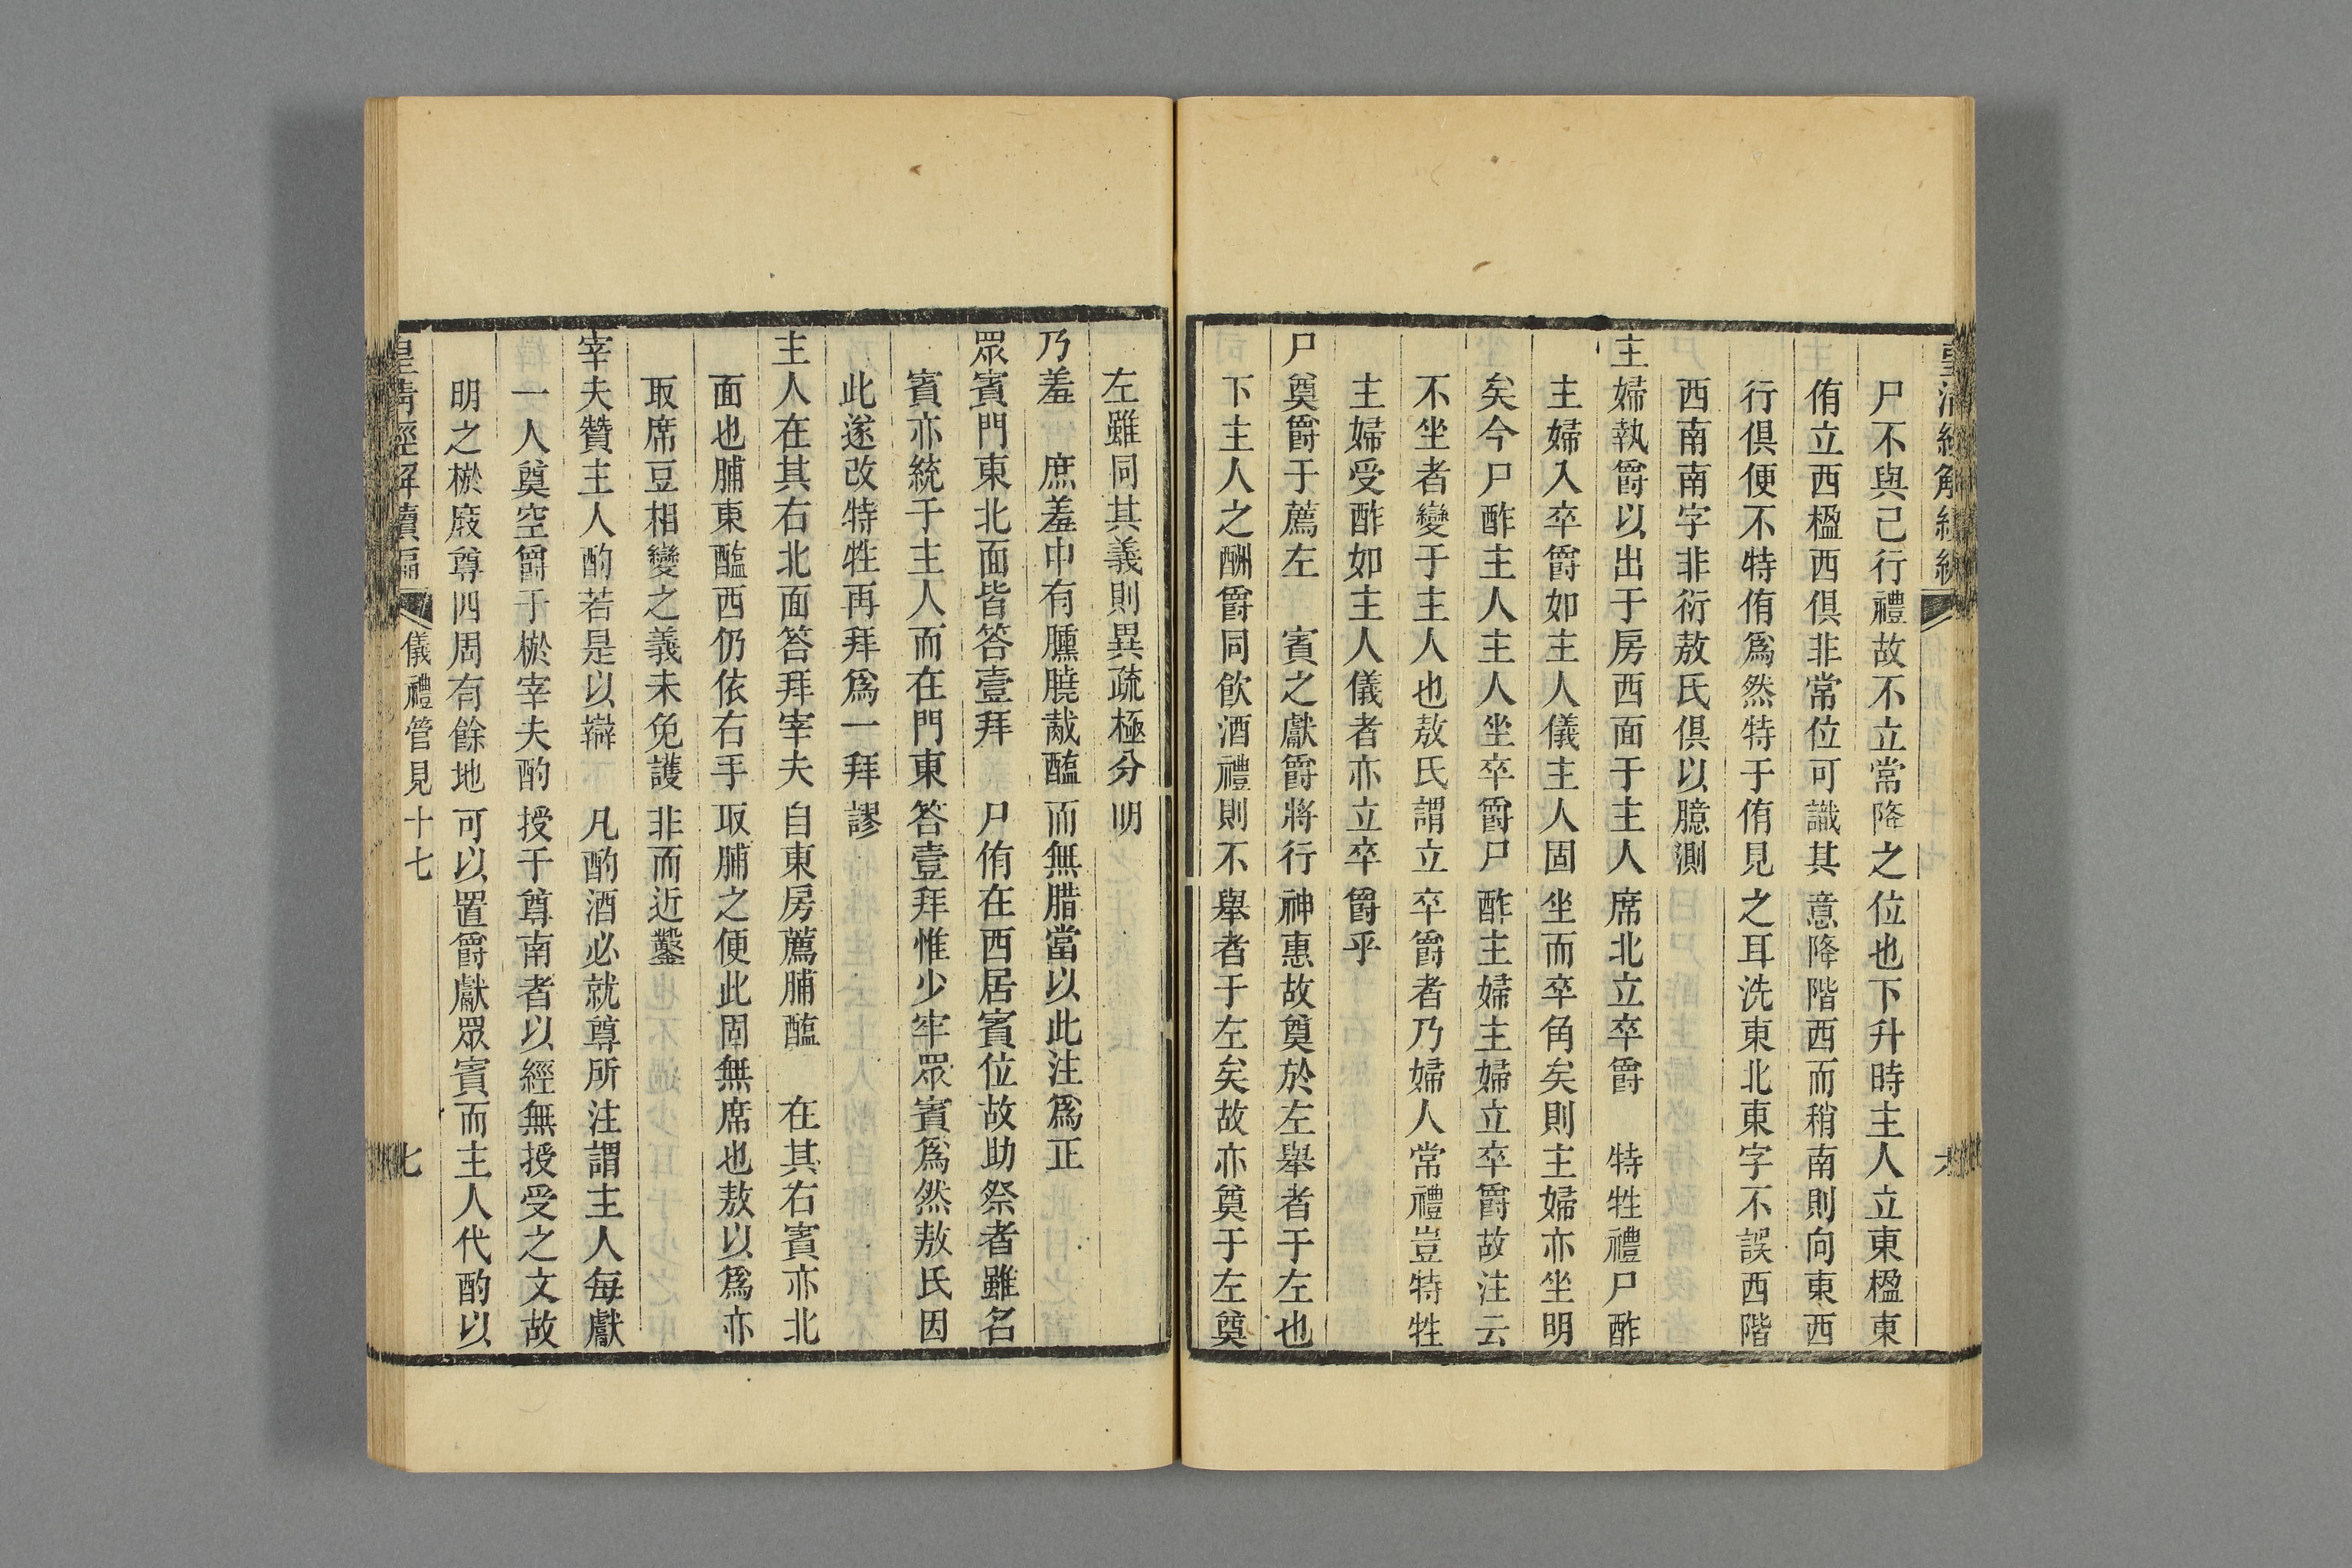 尸不與己行禮故不立常降之位也下升時主人立東楹東
侑立西楹西俱非常位可識其意降階西而稍南則向東西
行俱便不特侑爲然特于侑見之耳洗東北東字不誤西階
西南南字非衍敖氏俱以臆測
主婦執爵以出于房西面于主人席北立卒爵　特牲禮尸酢
主婦入卒爵如主人儀主人固坐而卒角矣則主婦亦坐明
矣今尸酢主人主人坐卒爵尸酢主婦主婦立卒爵故注云
不坐者變于主人也敖氏謂立卒爵者乃婦人常禮豈特牲
主婦受酢如主人儀者亦立卒爵乎
尸奠爵于薦左　賓之獻爵將行神惠故奠於左舉者于左也
下主人之酬爵同飲酒禮則不舉者于左矣故亦奠于左奠
左雖同其義則異疏極分明
乃羞　庶羞中有臐膮胾醢而無腊當以此注爲正
眾賓門東北面皆答壹拜　尸侑在西居賓位故助祭者雖名
賓亦統于主人而在門東答壹拜惟少牢眾賓爲然敖氏因
此遂改特牲再拜爲一拜謬
主人在其右北面答拜宰夫自東房薦脯醢　在其右賓亦北
面也脯東醢西仍依右手取脯之便此固無席也敖以爲亦
取席豆相變之義未免護非而近鑿
宰夫贊主人酌若是以辯　凡酌酒必就尊所注謂主人每獻
一人奠空爵于棜宰夫酌授于尊南者以經無授受之文故
明之棜廢尊四周有餘地可以置爵獻眾賓而主人代酌以
皇清經解續編　儀禮管見十七　七